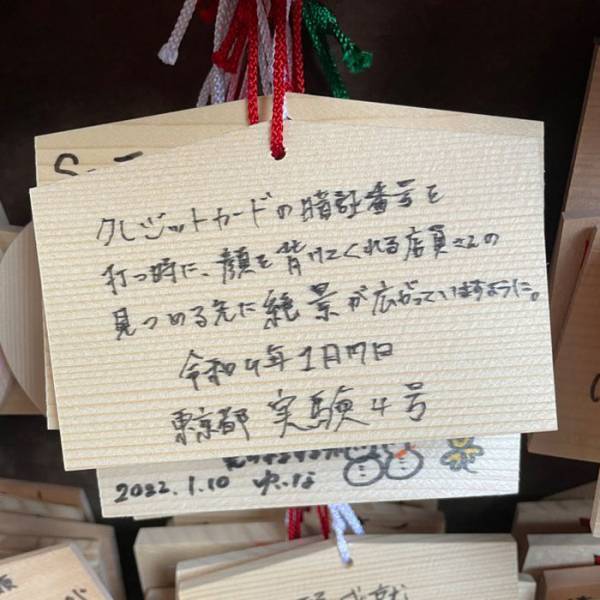 クレジットカードの暗証番号を
打つ時に、顔を背けてくれる店員さんの
見つめる先に絶景が広がっていますように。
令和4年1月17日
東京都 実験4号
2022.1.10 ゆいな